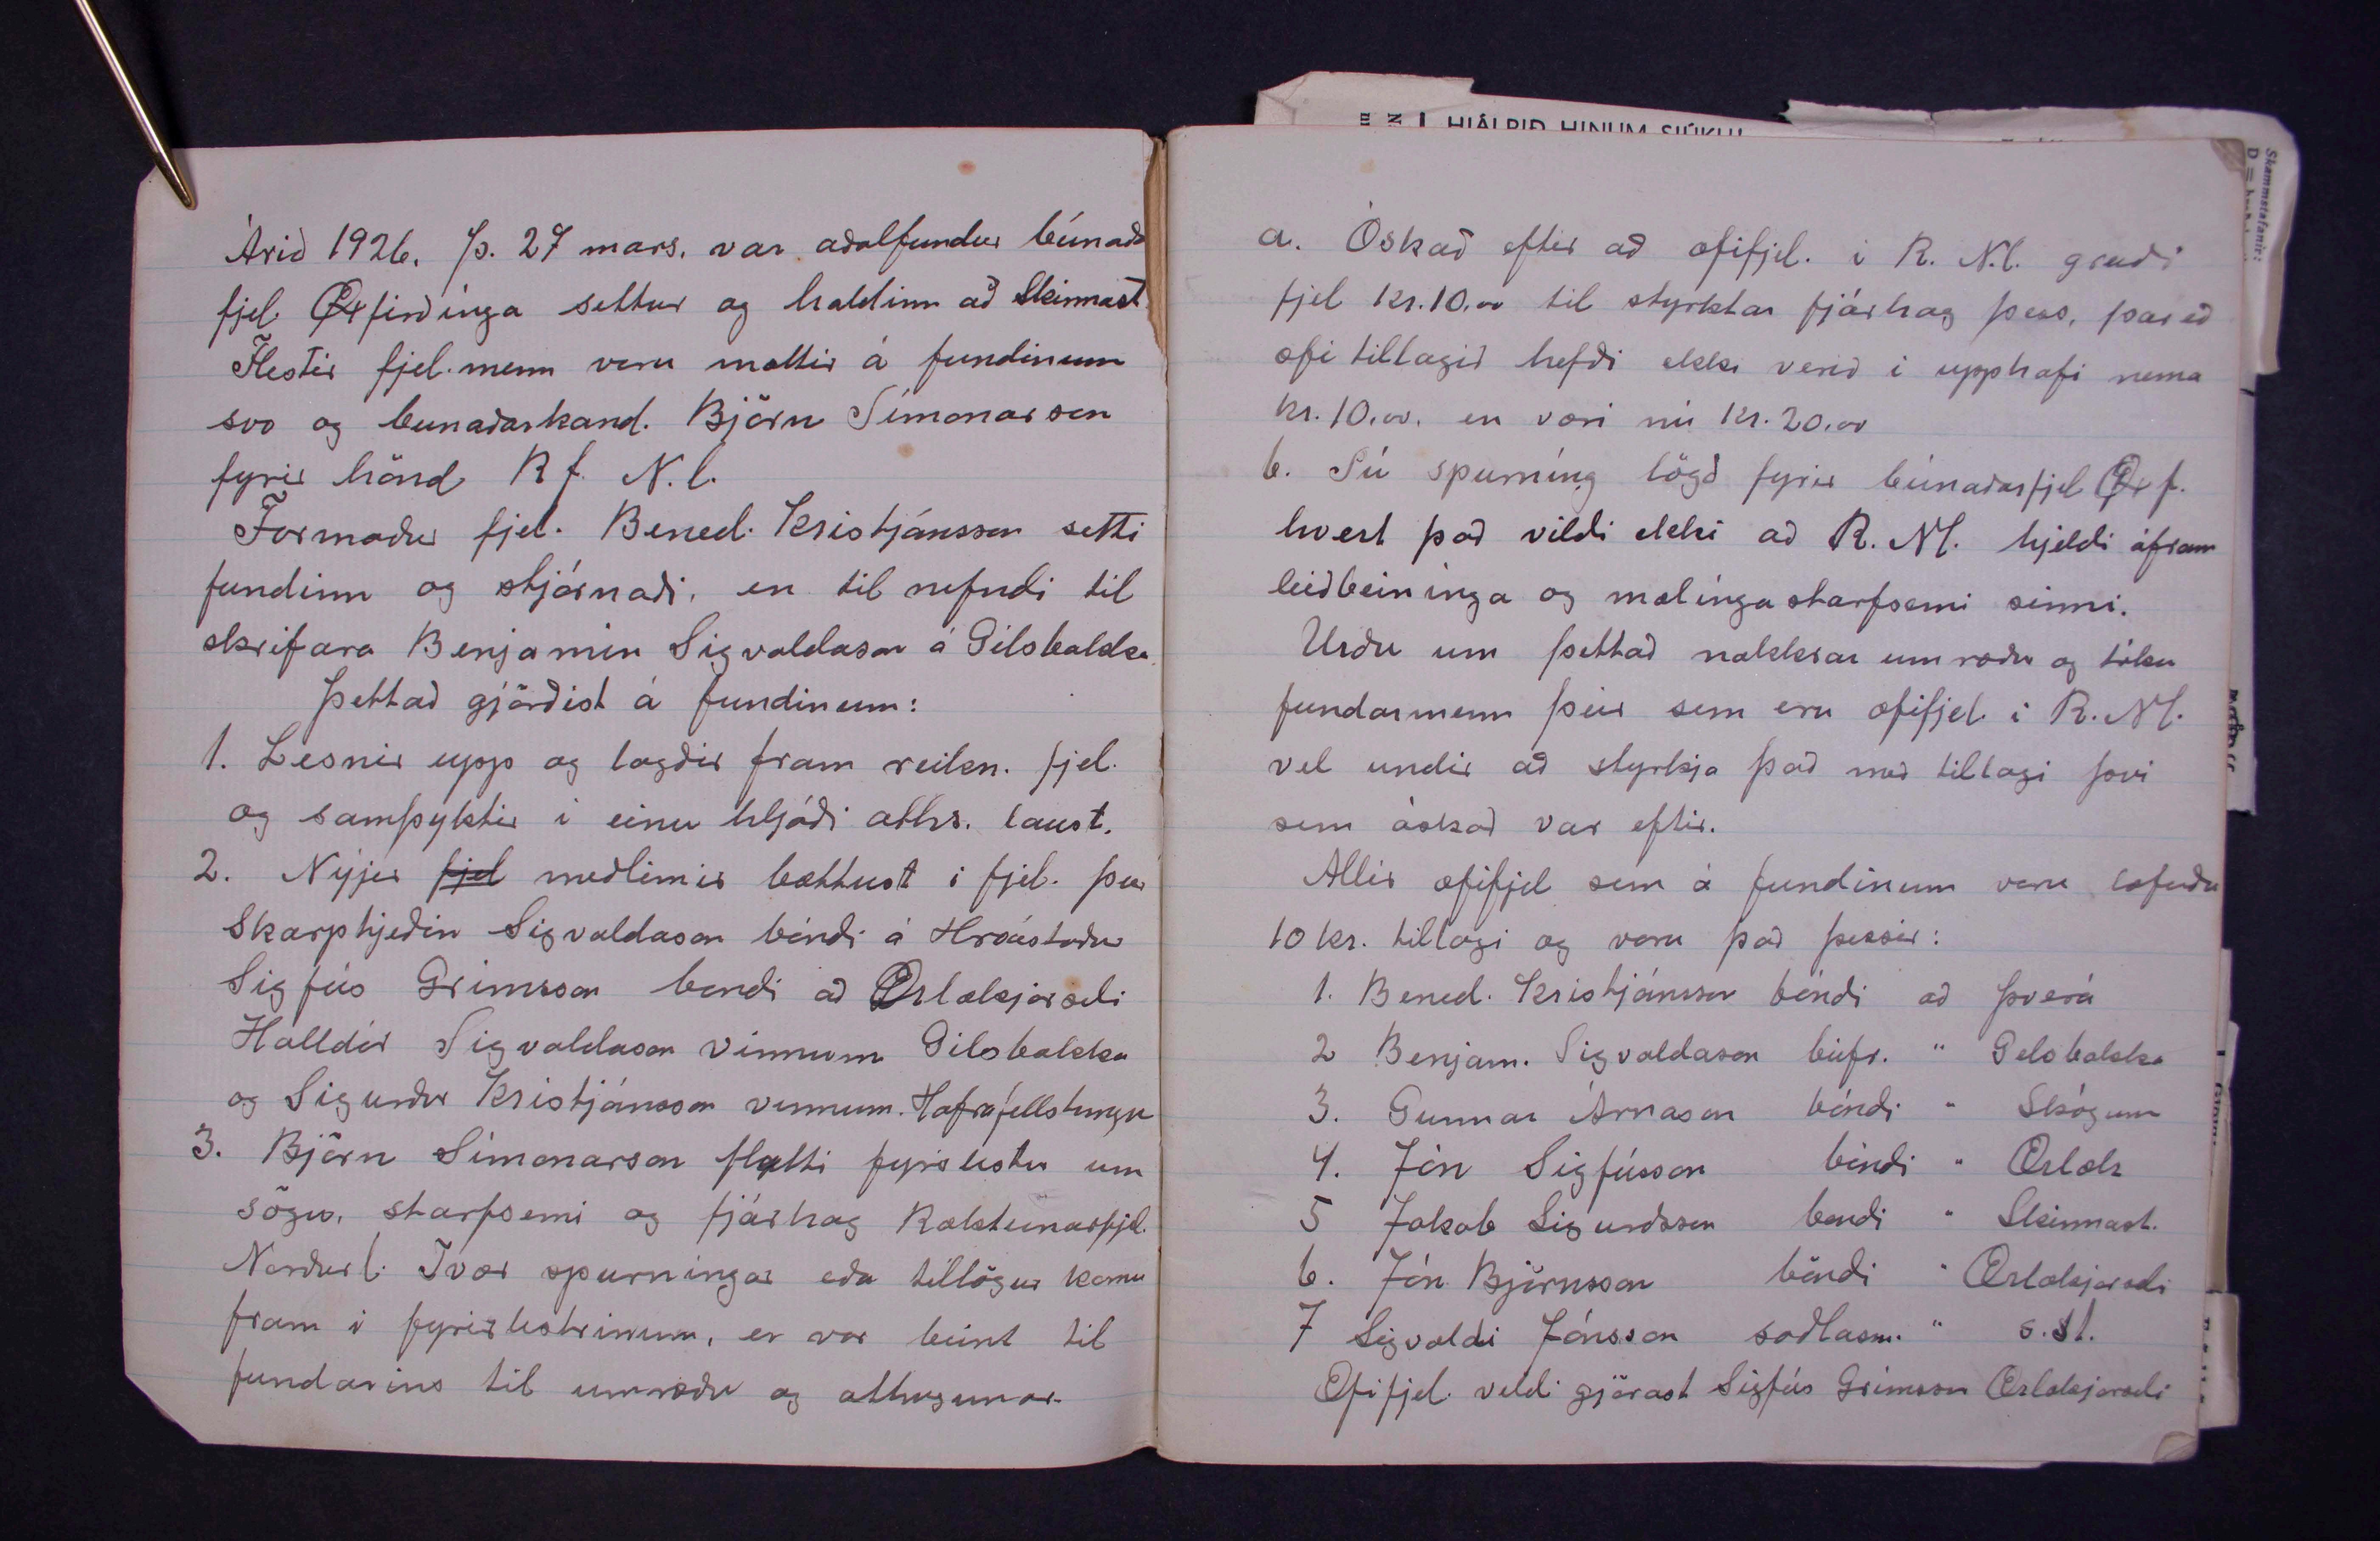 Árið 1926, þ. 27 mars. var aðalfundur búnaða
fjel. Öxfirðinga settur og haldinn að Skinnast.
Flestir fjel. menn voru mættir á fundinum
svo og bunaðarkand. Björn Símonarson
fyrir hönd R f. N. l.
Formaður fjel. Bened. Kristjánsson setti
fundinn og stjórnaði, en til nefndi til
skrifara Benjamín Sigvaldason á Gilsbakka.
Þettað gjörðist á fundinum:
1. Lesnir upp og lagðir fram reikn. fjel.
og samþyktir í einu hljóði aths. laust.
2. Nýjir fjel meðlimir bættust í fjel. þeir
Skarphjeðin Sigvaldason bóndi á Hróastöðu
Sigfús Grímsson bóndi að Ærlækjarseli
Halldór Sigvaldason vinnum Gilsbakka
og Sigurður Kristjánsson vinnum. Hafrafellstungu
3. Björn Símonarson flutti fyrirlestur um
sögu, starfsemi og fjárhag Ræktunarfjel.
Norðurl. Tvær spurningar eða tillögur komu
fram í fyrirlestrinum, er var beint til
fundarins til umræðu og athugunar.
a. Óskað eftir að æfifjel. í R. N.l. greiði
fjel Kr. 10.00 til styrktar fjárhag þess, þar eð
æfi tillagið hefði ekki verið í upphafi nema
kr. 10.00. en væri nú Kr. 20.00
b. Sú spurning lögð fyrir búnaðarfjel Öxf.
hvert það vildi ekki að R. Nl. hjeldi áfram
leiðbeininga og mælingastarfsemi sinni.
Urðu um þettað nokkrar umræður og tóku
fundarmenn þeir sem eru æfifjel. í R. Nl.
vel undir að styrkja það með tillagi því
sem óskað var eftir.
Allir æfifjel sem á fundinum voru lofuðu
10 kr. tillagi og voru það þessir:
1. Bened. Kristjánsson bóndi að Þverá
2 Benjam. Sigvaldason búfr. " Gilsbakka
3. Gunnar Árnason bóndi " Skógum
4. Jón Sigfússon bóndi " Ærlæk
5 Jakob Sigurðsson bóndi " Skinnast.
6. Jón Björnsson bóndi " Ærlækjarseli
7 Sigvaldi Jónsson söðlasm. " s. st.
Æfifjel. veldi gjörast Sigfús Grímsson Ærlækjarseli
HJÁLPIÐ HINUM SJÚKU!
Skammstafanir: